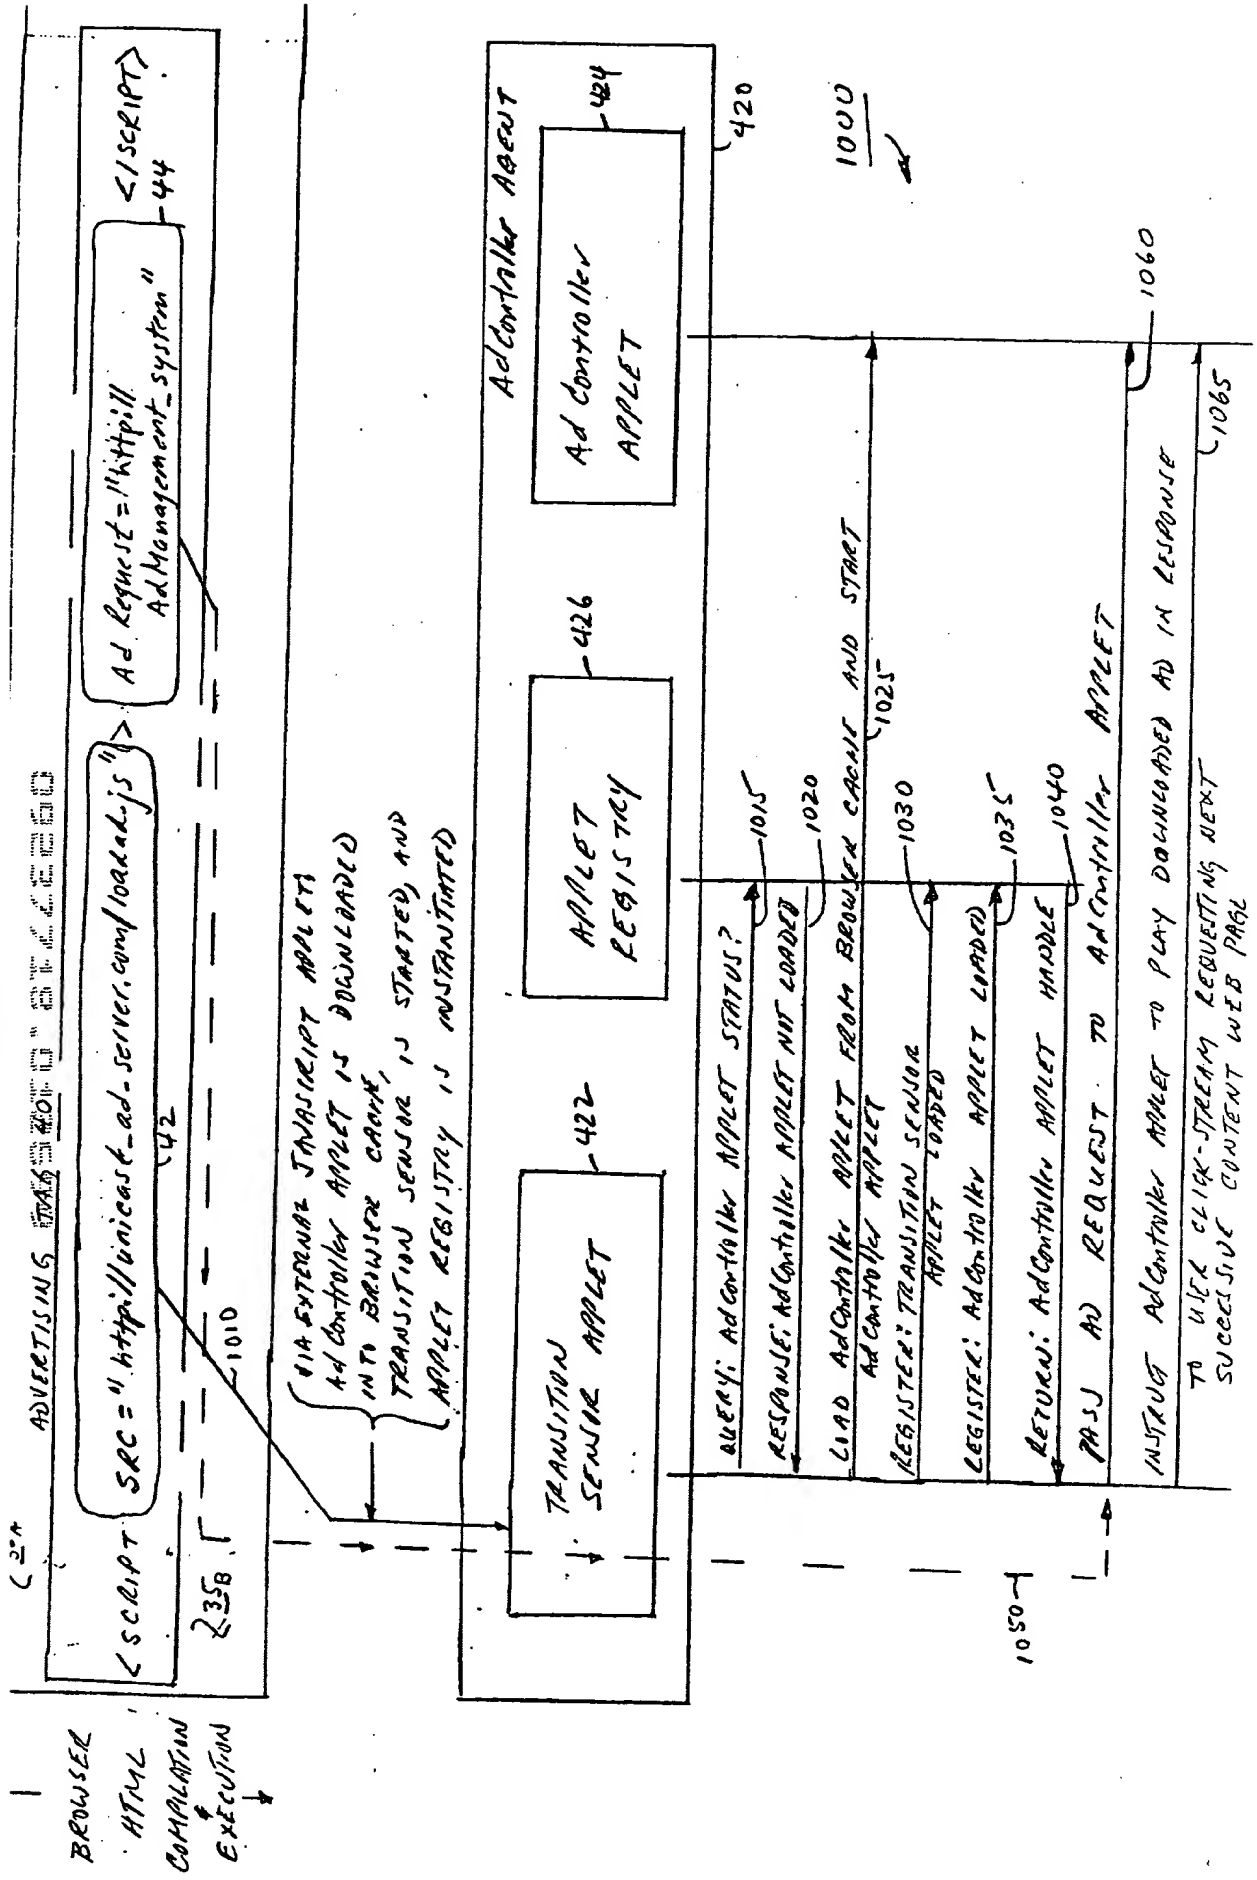 ADVERTISING
<SCRIPT SRC="http://unicast_ad-server.com/loadad.js"> Ad Request="http://
AdManagement_system" </SCRIPT>
42
44
35B
BROWSER
HTML
COMPILATION
&
EXECUTION
1010
VIA EXTERNAL JAVASCRIPT APPLET;
AdController APPLET IS DOWNLOADED
INTO BROWSER CACHE,
TRANSITION SENSOR IS STARTED, AND
APPLET REGISTRY IS INSTANTIATED
AdController AGENT
TRANSITION
SENSOR APPLET
422
APPLET
REGISTRY
426
Ad Controller
APPLET
424
420
1000
QUERY: AdController APPLET STATUS?
1015
RESPONSE: AdController APPLET NOT LOADED
1020
LOAD AdController APPLET FROM BROWSER CACHE AND START
AdController APPLET
1025
REGISTER: TRANSITION SENSOR
APPLET LOADED
1030
REGISTER: AdController APPLET LOADED
1035
RETURN: AdController APPLET HANDLE
1040
PASS AD REQUEST TO AdController APPLET
1050
1060
INSTRUCT AdController APPLET TO PLAY DOWNLOADED AD IN RESPONSE
TO USER CLICK-STREAM REQUESTING NEXT
SUCCESSIVE CONTENT WEB PAGE
1065